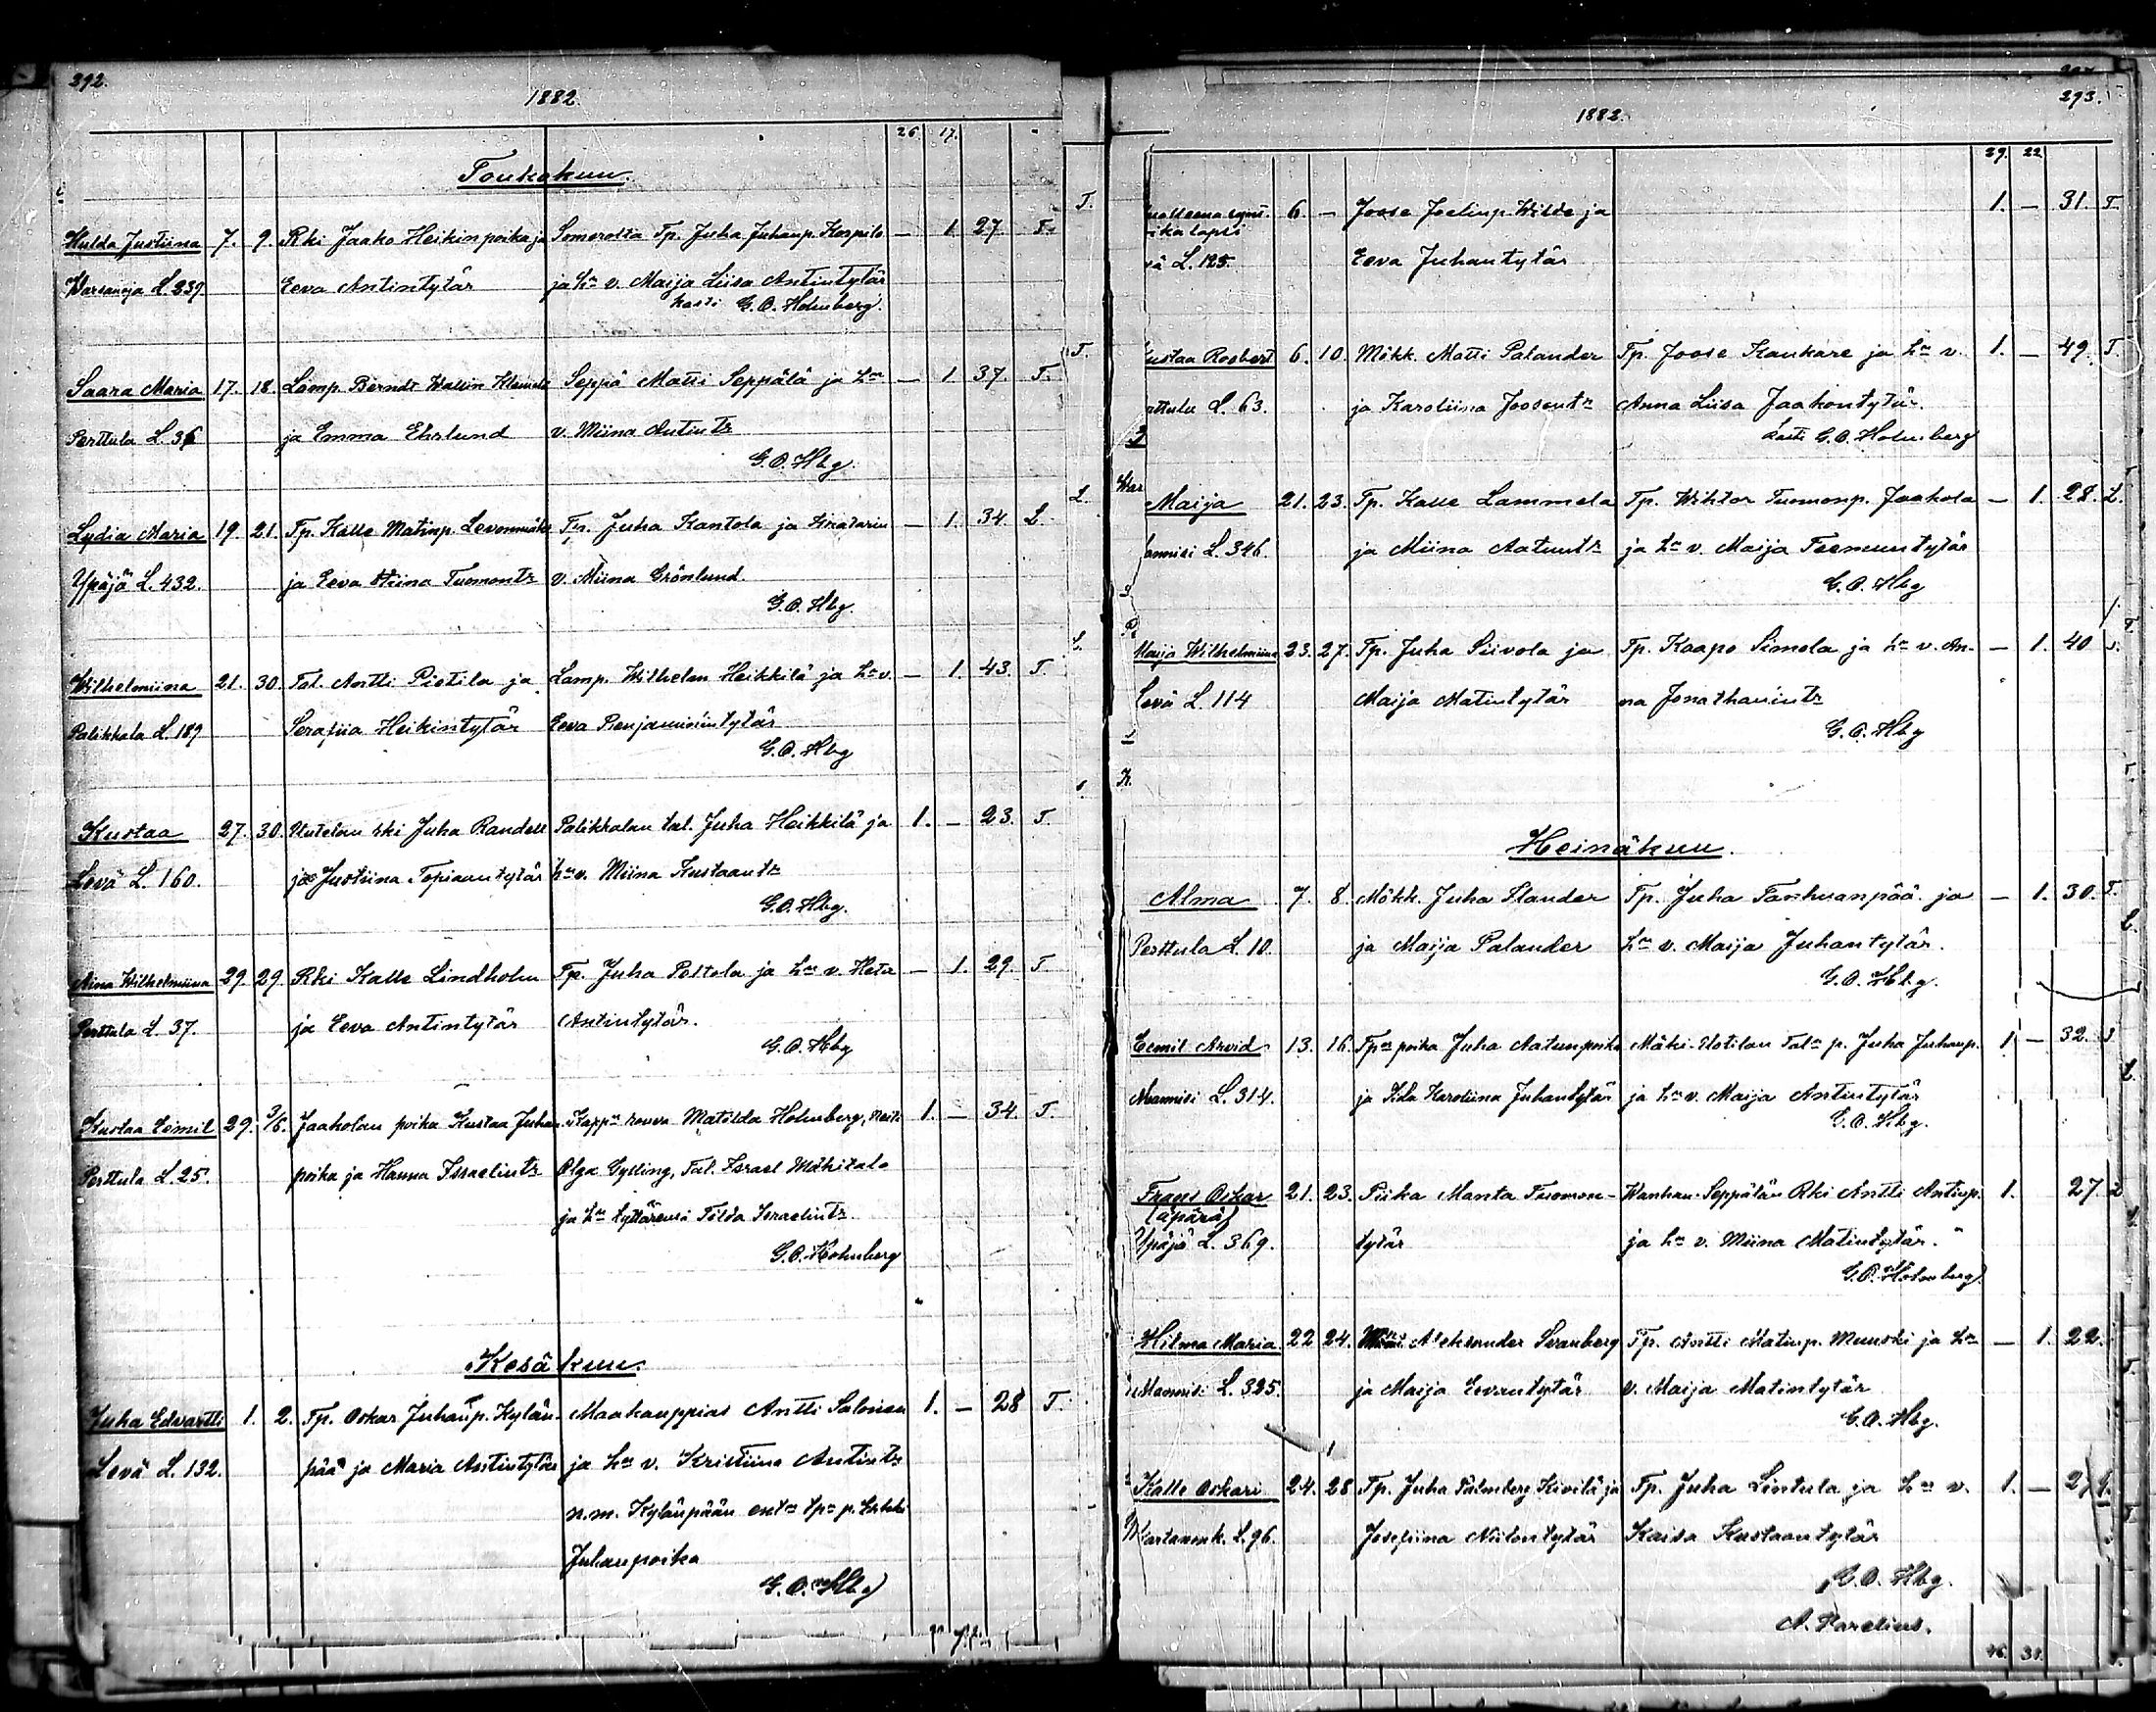 292.
1882.
26. 17.
Toukokuu.
Hulda Justiina 7. 9. Rki Jaako Heikinpoika ja Somerosta Tp. Juha Juhanp. — 1 27 T.
L. 239 Eeva Antintytär ja hn v. Maija Liisa Antintytär
kasti G.O. Holmberg.
Saara Maria 17. 18. Lamp. Berndt Wallin Seppä Matti Seppälä ja hn — 1 37. T.
Perttula L. 36 ja Emma Ehrlund v. Miina Antintr
G.O. Hbg.
Lydia Maria 19. 21. Tp. Kalle Matinp. Levonmäki Tp. Juha Kantola ja — 1. 34 L.
Ypäjä L. 432. ja Eeva Stiina Tuomontr v. Miina Grönlund.
G.O. Hbg.
Wilhelmiina 21. 30. Tal. Antti Pietila ja Lamp. Wilhelm Heikkilä ja hn v. — 1. 43. T.
Palikkala L. 189 Serafiia Heikintytär Eeva Benjaminintytär
G.O. Hbg
Kustaa 27. 30. Uutelan rki Juha Randell Palikkalan tal. Juha Heikkilä ja 1. — 23. T.
Levä L. 160. ja Justiina Topiaantytär hn v. Miina Kustaantr
G.O. Hbg.
Aina Wilhelmiina 29. 29. Rki Kalle Lindholm Tp. Juha Poltola ja hn v. Heta — 1. 29. T
Perttula L. 37. ja Eeva Antintytär Antintytär.
G.O. Hbg
Kustaa Eemil 29. 3/6. Jaakolan poika Kustaa Juhan Kappn rouva Matilda Holmberg, neiti 1. — 34. T.
Perttula L. 25. poika ja Hanna Israelintr Olga Gylling, Tal. Israel Mäkitalo
ja hn tyttärensä Tilda Israelintr
G.O. Holmberg
Kesäkuu.
Juha Edvartti 1. 2. Tp. Oskar Juhanp. Kylän- Maakauppias Antti Salonen 1. — 28 T.
Levä L. 132. pää ja Maria Antintytär ja hn v. Kristiina Antintr
n.m. Kylänpään ent. tpn p. Erkki
Juhanpoika
G.O. Hbg
293.
1882.
29. 22
6. — Joose Joelinp. Wilde ja 1. — 31. T.
L. 125. Eeva Juhantytär
Kustaa Roobert 6. 10. Mökk. Matti Palander Tp. Joose Kankare ja hn v. 1. — 49. T
Perttula L. 63. ja Karoliina Joosentr Anna Liisa Jaakontytär.
kasti G.O. Holmberg
Maija 21. 23. Tp. Kalle Lammela Tp. Wihtor Tuomonp. Jaakola — 1. 28. L.
Mannisi L. 346. ja Miina Aatuntr ja hn v. Maija Teemuntytär
G.O. Hbg
Maija Wilhelmiina 23. 27. Tp. Juha Siivola ja Tp. Kaapo Simola ja hn v. An- — 1. 40
Levä L. 114 Maija Matintytär na Jonathanintr
G.O. Hbg
Heinäkuu.
Alma 7. 8. Mökk. Juha Slander Tp. Juha Tanhuanpää ja — 1. 30. T.
Perttula L. 10. ja Maija Palander hn v. Maija Juhantytär.
G.O. Hbg.
Eemil Arvid 13. 16. Tpn poika Juha Aatunpoika Mäki-Uotilan Taln p. Juha Juhanp. 1 — 32.
Mannisi L. 314. ja Ida Karoliina Juhantytär ja hn v. Maija Antintytär
G.O. Hbg.
Frans Oskar 21. 23. Piika Manta Tuomon- Wanhan-Seppälän Rki Antti Antinp. 1. 27.
(äpärä)
Ypäjä L. 369. tytär ja hn v. Miina Matintytär.
G.O. Holmberg
Hilma Maria 22 24. Aleksander Svanberg Tp. Antti Matinp. Muurski ja hn — 1. 22.
Mannisi L. 325. ja Maija Eevantytär v. Maija Matintytär
G.O. Hbg.
Kalle Oskari 24. 28 Tp. Juha Palmberg Kivilä ja Tp. Juha Lintula ja hn v. 1. — 27
Kartanonk. L. 96. Josefiina Niilontytär Kaisa Kustaantytär
G.O. Hbg.
A. Parelius.